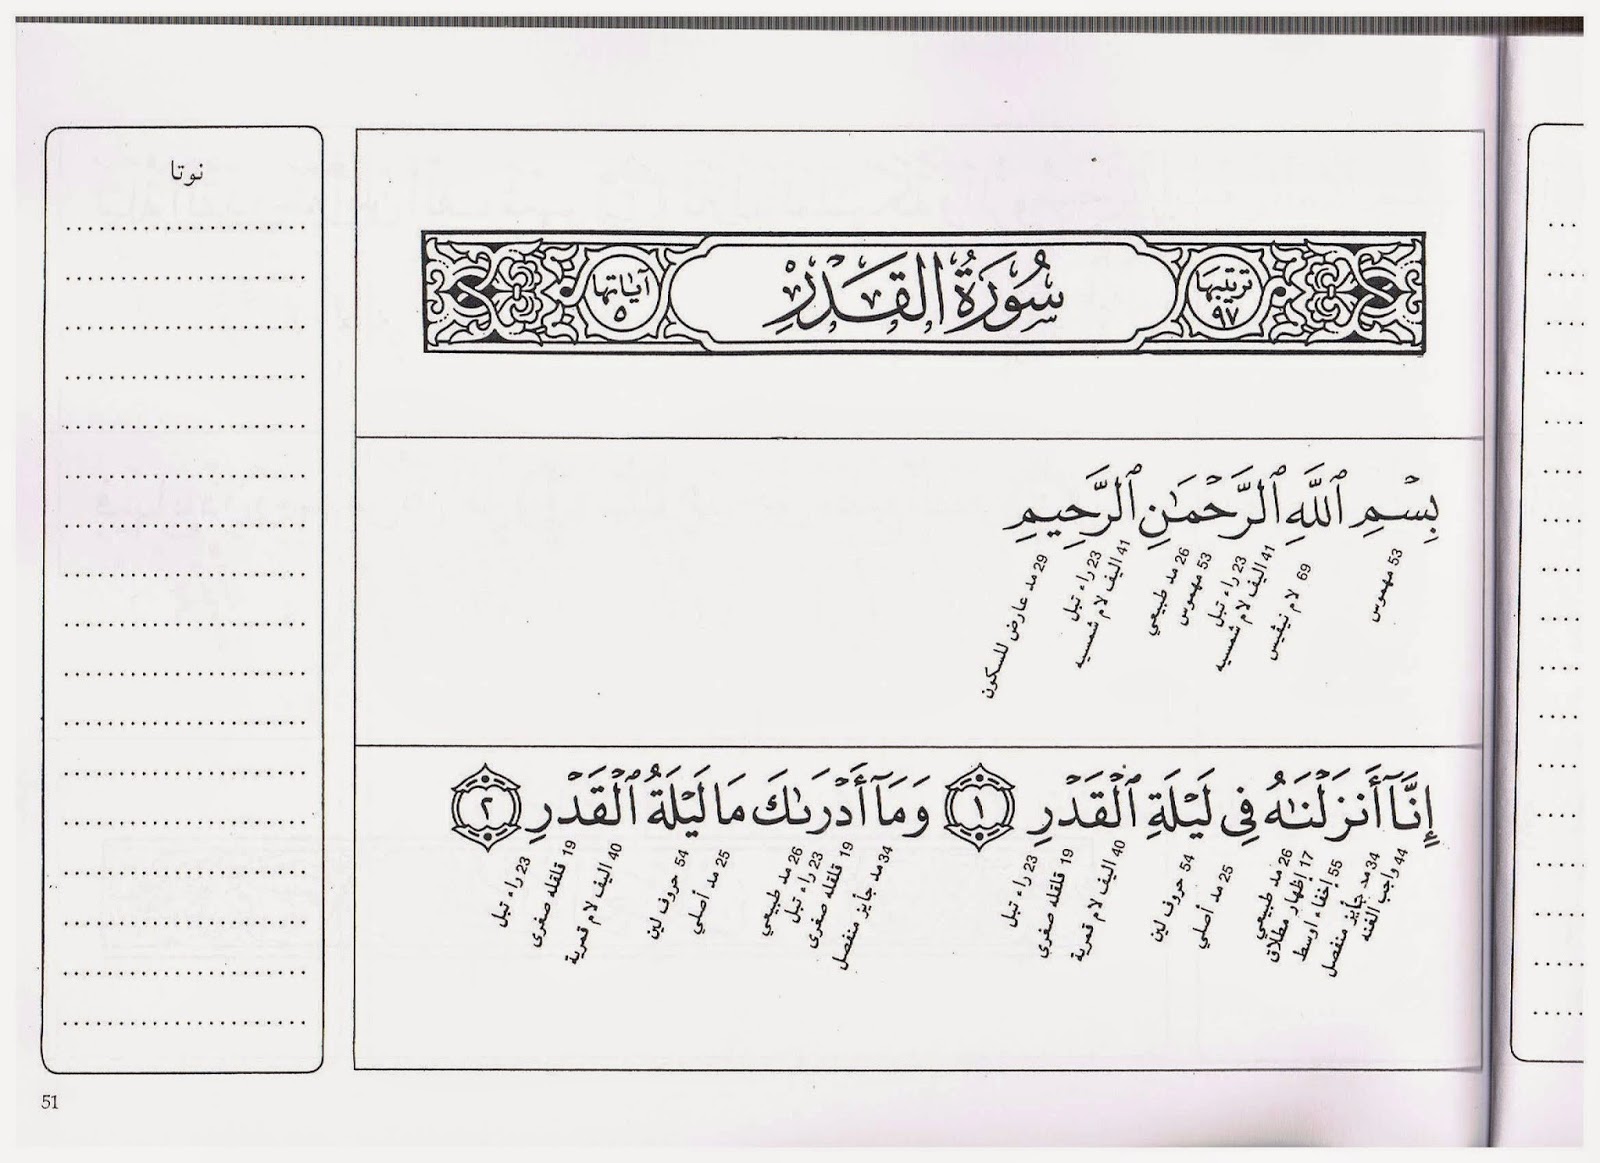 سُورَةُ الْقَدْرِ
ترتيبها ٩٧
آياتها ٥
بِسْمِ ٱللَّهِ ٱلرَّحْمَٰنِ ٱلرَّحِيمِ
53 مهموس
69 لام تيڤيس
41 اليف لام شمسيه
23 راء تبل
53 مهموس
26 مد طبيعي
41 اليف لام شمسيه
23 راء تبل
29 مد عارض للسكون
إِنَّآ أَنزَلْنَٰهُ فِى لَيْلَةِ ٱلْقَدْرِ ١ وَمَآ أَدْرَىٰكَ مَا لَيْلَةُ ٱلْقَدْرِ ٢
44 واجب الغنه
34 مد جأيز منفصل
55 إخفاء اوسط
17 إظهار مطلاق
26 مد طبيعي
25 مد أصلي
54 حروف لين
40 اليف لام قمرية
19 قلقله صغرى
23 راء تبل
34 مد جأيز منفصل
19 قلقله صغرى
23 راء تبل
26 مد طبيعي
25 مد أصلي
54 حروف لين
40 اليف لام قمرية
19 قلقله صغرى
23 راء تبل
نوتا
51